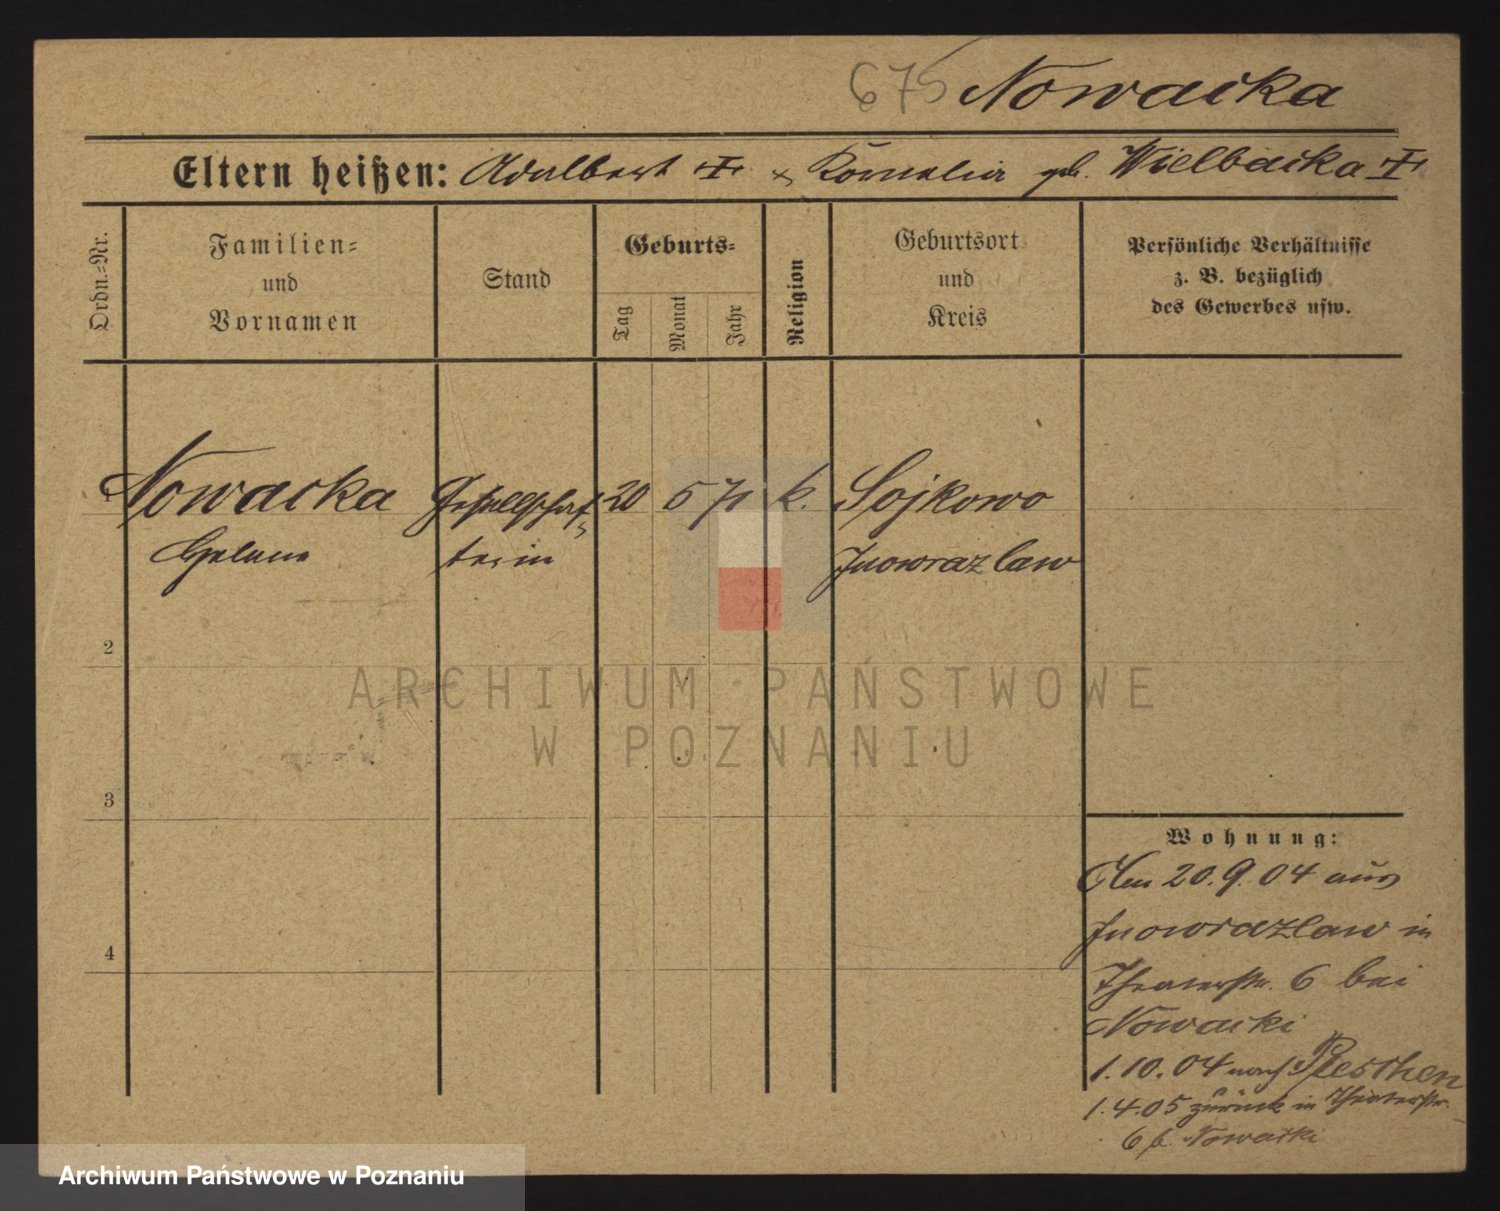 675 Nowacka
Eltern heißen: Adalbert + & Kornelia geb. Wielbacka +
Ordn.-Nr.
Familien-
und
Vornamen
Stand
Geburts-
Tag
Monat
Jahr
Religion
Geburtsort
und
Kreis
Persönliche Verhältnisse
z. B. bezüglich
des Gewerbes usw.
1 Nowacka Gesellschaf- 20 5 71 k. Sojkowo
Helene terin Inowrazlaw
2
3
4
Wohnung:
Am 20.9.04 aus
Inowrazlaw in
Theaterstr. 6 bei
Nowacki
1.10.04 nach Pleschen
1.4.05 zurück in Theaterstr.
6 b. Nowacki
ARCHIWUM PAŃSTWOWE
W POZNANIU
Archiwum Państwowe w Poznaniu